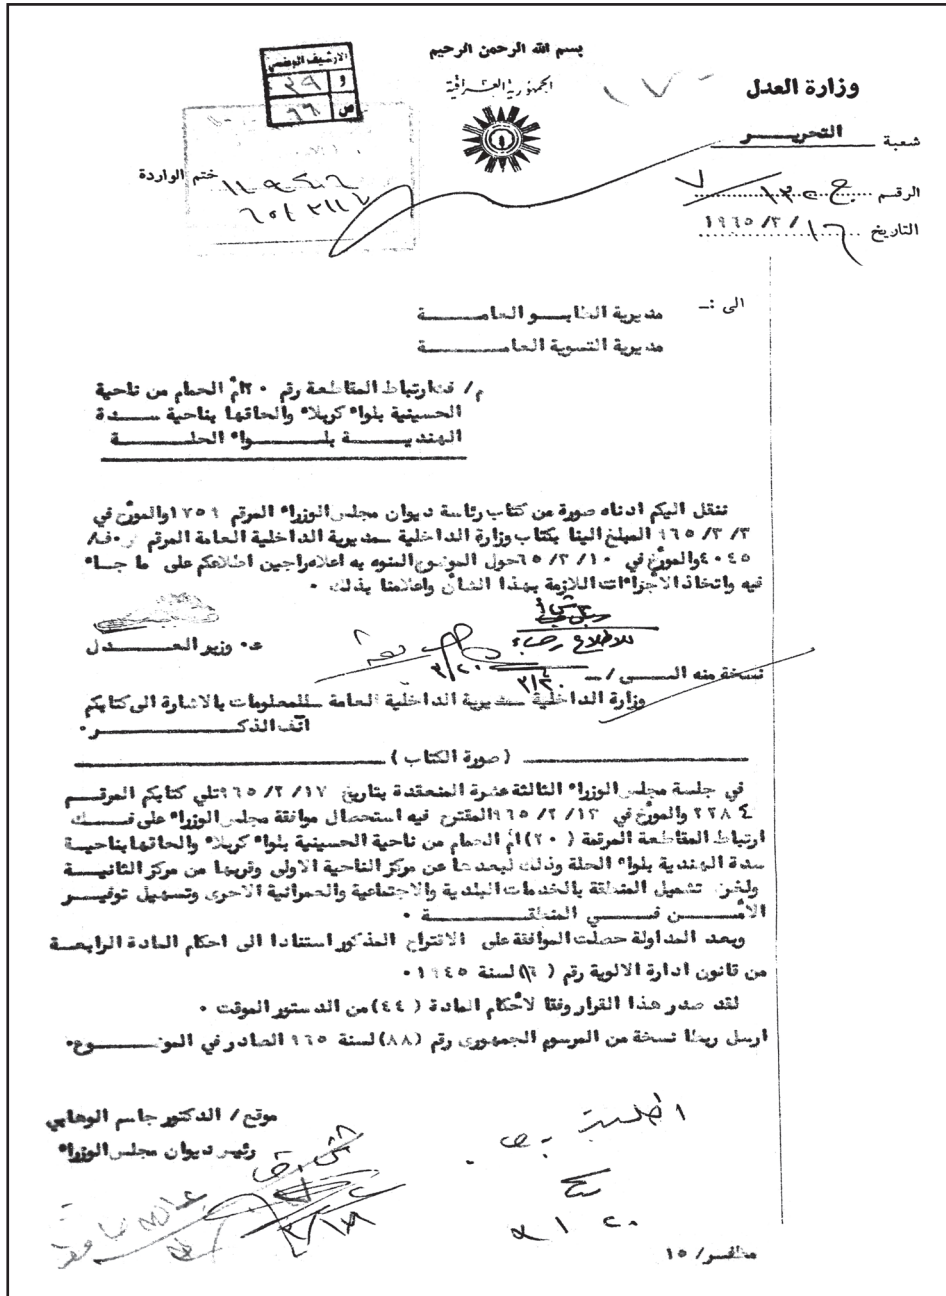 بسم الله الرحمن الرحيم
الجمهورية العراقية
وزارة العدل
شعبة التحريـــر
الرقم
التاريخ ١٦/ ٣/ ١٩٦٥
الارشيف الوطني
و ٢٩
ص ٦٦
ختم الواردة
الى :ـ مديرية الطابـــو العامـــــة
مديرية التسوية العامـــــــة
م/ فك ارتباط المقاطعة رقم ٢٠ أم الحمام من ناحية
الحسينية بلواء كربلاء والحاقها بناحية ســـدة
الهنديــــــة بلـــــــواء الحلـــــة
ننقل اليكم ادناه صورة من كتاب رئاسة ديوان مجلس الوزراء المرقم ١٢٥٩ والمورخ في
٣/ ٣/ ٩٦٥ المبلغ الينا بكتاب وزارة الداخلية ــمديرية الداخلية العامة المرقم
٤٠٤٥ والمورخ في ١٠/ ٣/ ٦٥ حول الموضوع المنوه به اعلاه راجين اطلاعكم على ما جــاء
فيه واتخاذ الاجراءات اللازمة بهذا الشأن واعلامنا بذلك ٠
ع٠ وزير العــــــدل
للاطلاع رجاء
نسخة منه الـــــى /ــ
وزارة الداخلية ــمديرية الداخلية العامة ــللمعلومات بالاشارة الى كتابكم
انف الذكـــــــــــر٠
( صورة الكتاب )
في جلسة مجلس الوزراء الثالثة عشرة المنعقدة بتاريخ ١٧/ ٢/ ٩٦٥ تلي كتابكم المرقــم
٢٢٨٤ والمورخ في ١٢/ ٢/ ٩٦٥ المقترح فيه استحصال موافقة مجلس الوزراء على فـــك
ارتباط المقاطعة المرقمة (٢٠) ام الحمام من ناحية الحسينية بلواء كربلاء والحاقها بناحيــة
سدة الهندية بلواء الحلة وذلك لبعدها عن مركز الناحية الاولى وقربها من مركز الثانيـــة
ولغرض تشميل المنطقة بالخدمات البلدية والاجتماعية والعمرانية الاخرى وتسهيل توفيـــر
الأمـــــن فـــــي المنطقـــــــــة ٠
وبعد المداولة حصلت الموافقة على الاقتراح المذكور استنادا الى احكام المادة الرابعــة
من قانون ادارة الالوية رقم (١٦) لسنة ١٩٤٥ ٠
لقد صدر هذا القرار وفقا لأحكام المادة (٤٤) من الدستور الموقت ٠
ارسل ربطا نسخة من المرسوم الجمهورى رقم (٨٨) لسنة ٩٦٥ الصادر في الموضـــوع٠
موقع/ الدكتور جاسم الوهابي
رئيس ديوان مجلس الوزراء
مظفر/ ١٥